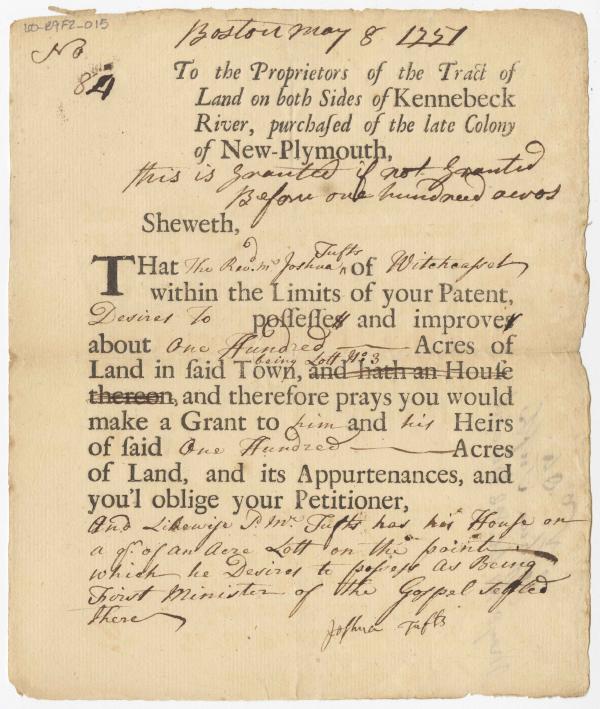 LO-R9F2-015
Boston may 8 1751
No
84
To the Proprietors of the Tract of
Land on both Sides of Kennebeck
River, purchaſed of the late Colony
of New-Plymouth,
this is Granted if not Granted
Before one hundred acros
Sheweth,
THat The Revd. Mr Joshua Tufts of Witchcasset
within the Limits of your Patent,
Desires to poſſeſſes and improves
about One Hundred Acres of
being Lott No 3
Land in ſaid Town, and hath an Houſe
thereon, and therefore prays you would
make a Grant to him and his Heirs
of ſaid One Hundred Acres
of Land, and its Appurtenances, and
you'l oblige your Petitioner,
And Likewise Sd. Mr. Tufts has his House on
a qr. of an Acre Lott on the point
which he Desires to possess As Being
First Minister of the Gospel settled
there
Joshua Tufts